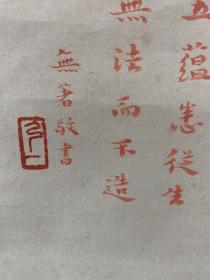 五蘊悉從生
無法而不造
無著敬書